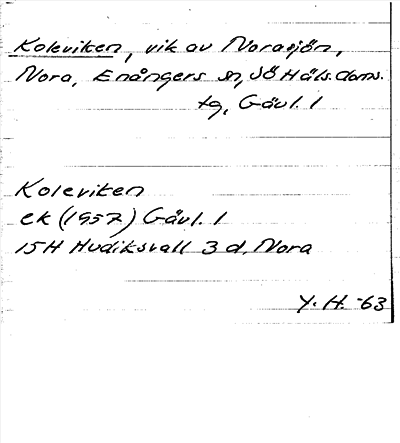 Koleviken, vik av Norasjön,
Nora, Enångers sn, SÖ Häls. doms.
tg, Gävl. l
Koleviken
ek (1957) Gävl. l
15H Hudiksvall 3 d, Nora
Y. H. -63